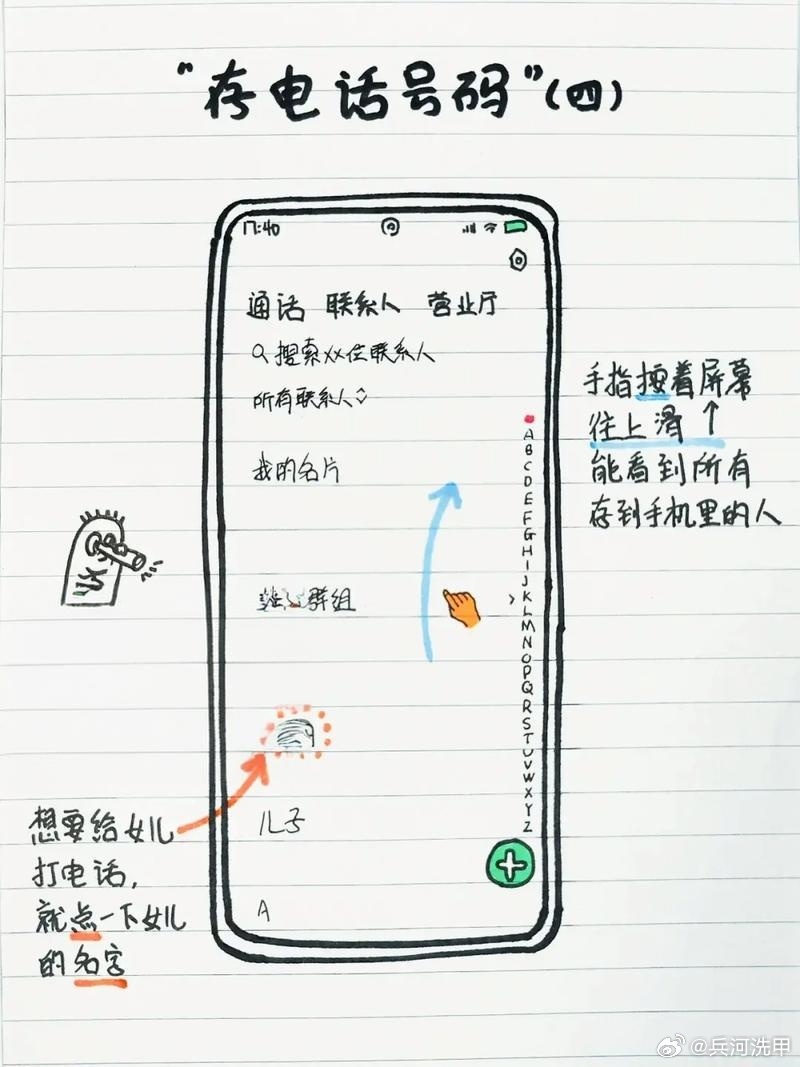 “存电话号码”(四)
17:40
通话 联系人 营业厅
搜索XX位联系人
所有联系人
我的名片
群组
儿子
A
A
B
C
D
E
F
G
H
I
J
K
L
M
N
O
P
Q
R
S
T
U
V
W
X
Y
Z
手指按着屏幕
往上滑↑
能看到所有
存到手机里的人
想要给女儿
打电话,
就点一下女儿
的名字
@兵河洗甲